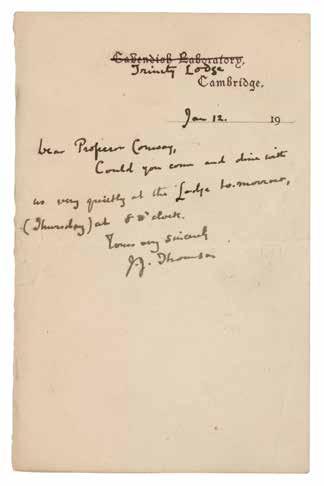 Cavendish Laboratory,
Trinity Lodge
Cambridge.
Jan 12. 19
Dear Professor Conway,
Could you come and dine with
us very quietly at the Lodge to-morrow,
(Thursday) at 8 o'clock.
Yours very sincerely
J.J. Thomson